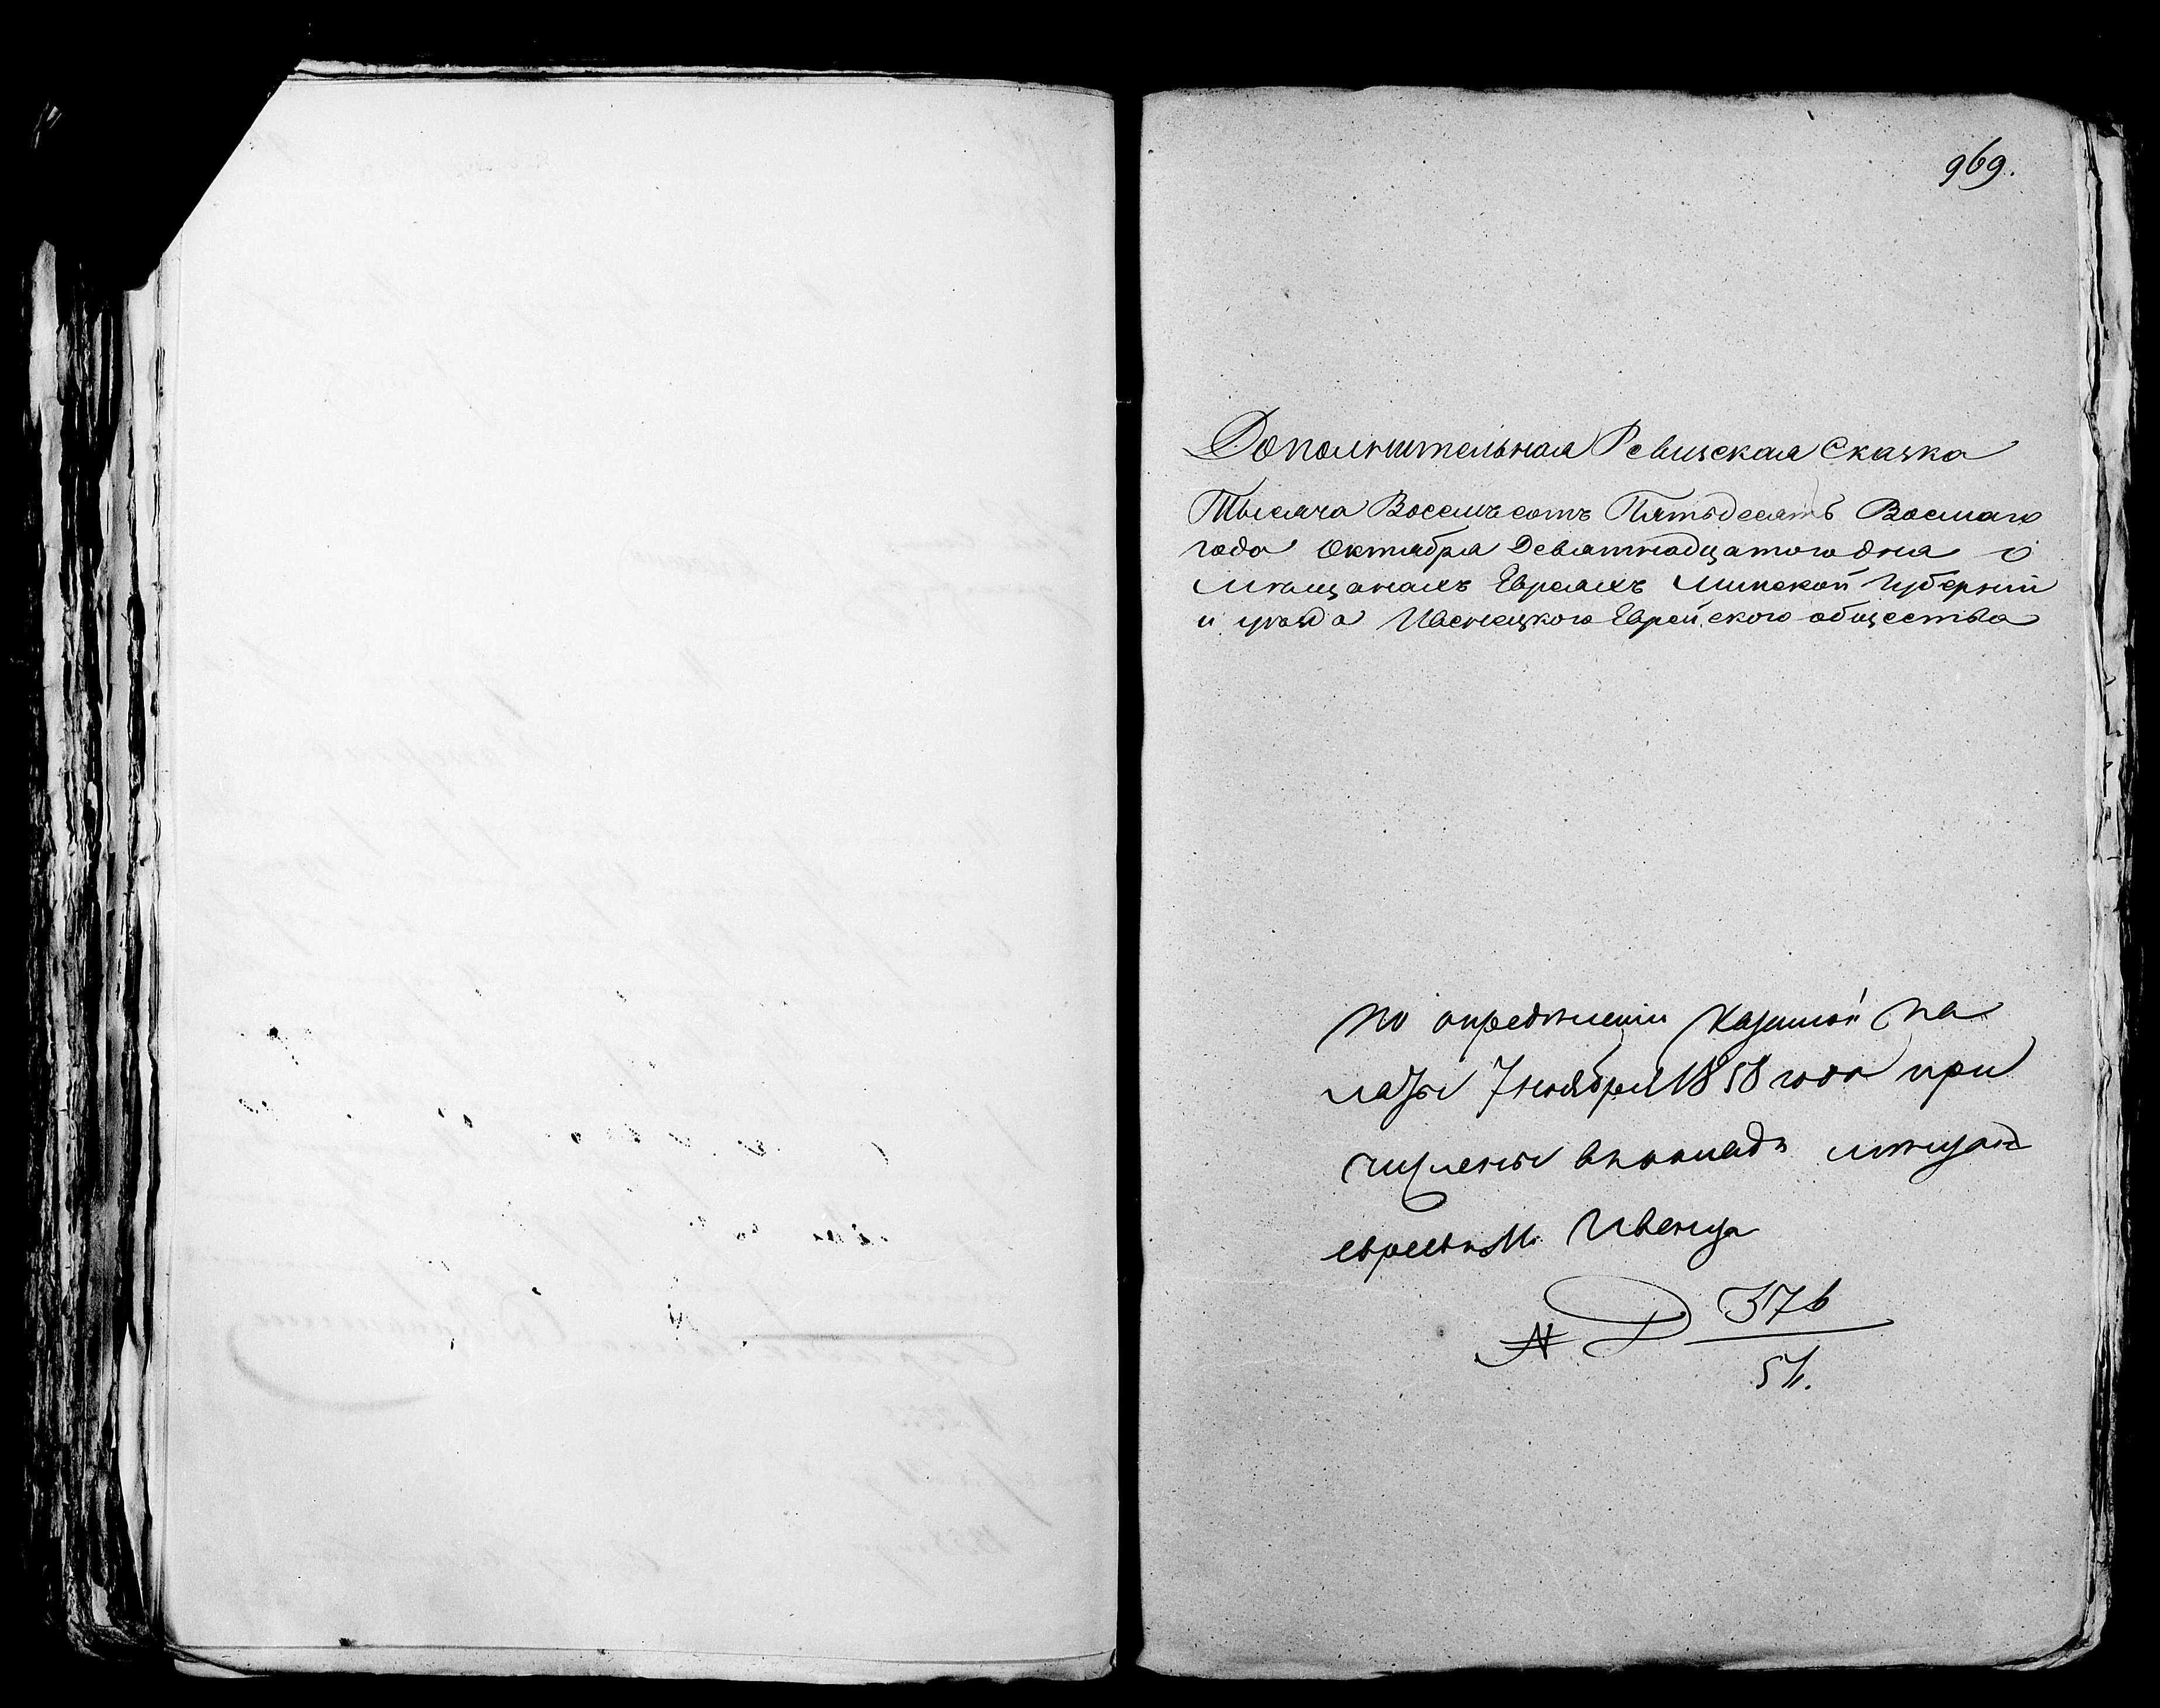 969.
Дополнительная Ревизская Сказка
Тысяча Восемьсотъ Пятьдесятъ Восмаго
года Октября Девятнадцатого дня о
мѣщанахъ Евреяхъ Минской Губерніи
и уѣзда Ивенецкого Еврейского общества
по опредѣленію Казенной Па
латы 7 ноября 1858 года при
числены въ окладъ мѣщанъ
евреевъ м. Ивенца
№ Р 376
51.